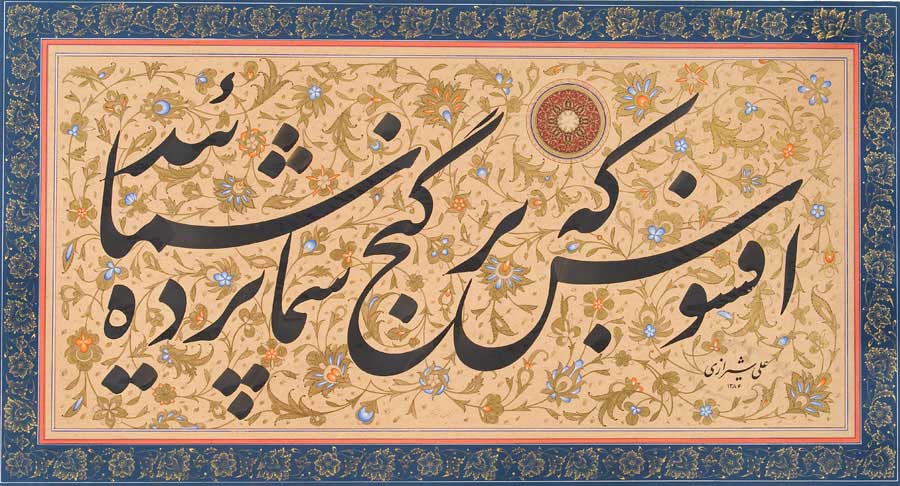 افسوس که بر گنج شما پرده شمائید
علی شیرازی
۱۳۸۶